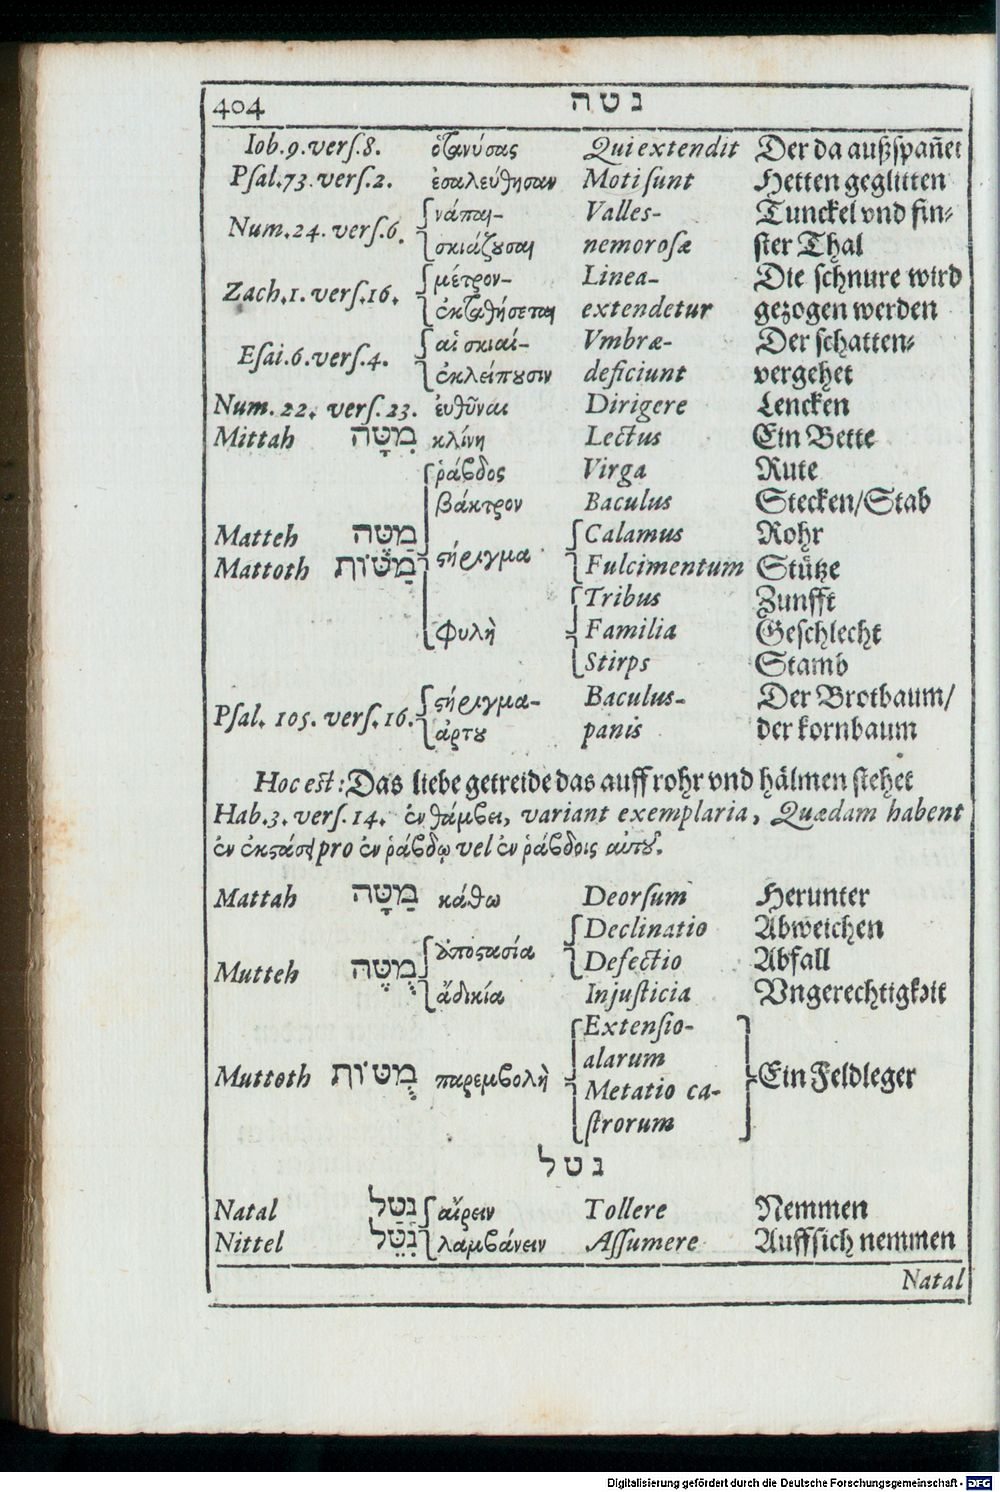 404 נטה
Iob. 9. verſ. 8. ὁ τανύσας Qui extendit Der da außſpañet
Pſal. 73. verſ. 2. ἐσαλεύθησαν Moti ſunt Hetten geglitten
νάπαι- Valles- Tunckel vnd fin-
Num. 24. verſ. 6. σκιάζουσαι nemoroſæ ſter Thal
μέτρον- Linea- Die ſchnure wird
Zach. 1. verſ. 16. ἐκταθήσεται extendetur gezogen werden
αἱ σκιαί- Vmbræ- Der ſchatten-
Eſai. 6. verſ. 4. ἐκλείπουσιν deficiunt vergehet
Num. 22. verſ. 23. ἐυθῦναι Dirigere Lencken
Mittah מִטָּה κλίνη Lectus Ein Bette
ῥάβδος Virga Rute
βάκτρον Baculus Stecken/Stab
Matteh מַטֶּה Calamus Rohr
Mattoth מַטּוֹת στήριγμα Fulcimentum Stütze
Tribus Zunfft
φυλὴ Familia Geſchlecht
Stirps Stamb
στήριγμα- Baculus- Der Brotbaum/
Pſal. 105. verſ. 16. ἄρτου panis der kornbaum
Hoc est: Das liebe getreide das auff rohr vnd hälmen ſtehet
Hab. 3. verſ. 14. ἐν θάμβει, variant exemplaria, Quædam habent
ἐν ἐκστάσει pro ἐν ῥάβδῳ vel ἐν ῥάβδοις αὐτοῦ.
Mattah מַטָּה κάθω Deorſum Herunter
Declinatio Abweichen
ὑποστασία Defectio Abfall
Mutteh מֻטֶּה ἄδικία Injuſticia Vngerechtigkeit
Extenſio-
alarum
Muttoth מֻטּוֹת παρεμβολὴ Metatio ca- Ein Feldleger
ſtrorum
נטל
Natal נָטַל αἴρειν Tollere Nemmen
Nittel נִטֵּל λαμβάνειν Aſſumere Auff ſich nemmen
Natal
Digitalisierung gefördert durch die Deutsche Forschungsgemeinschaft - DFG